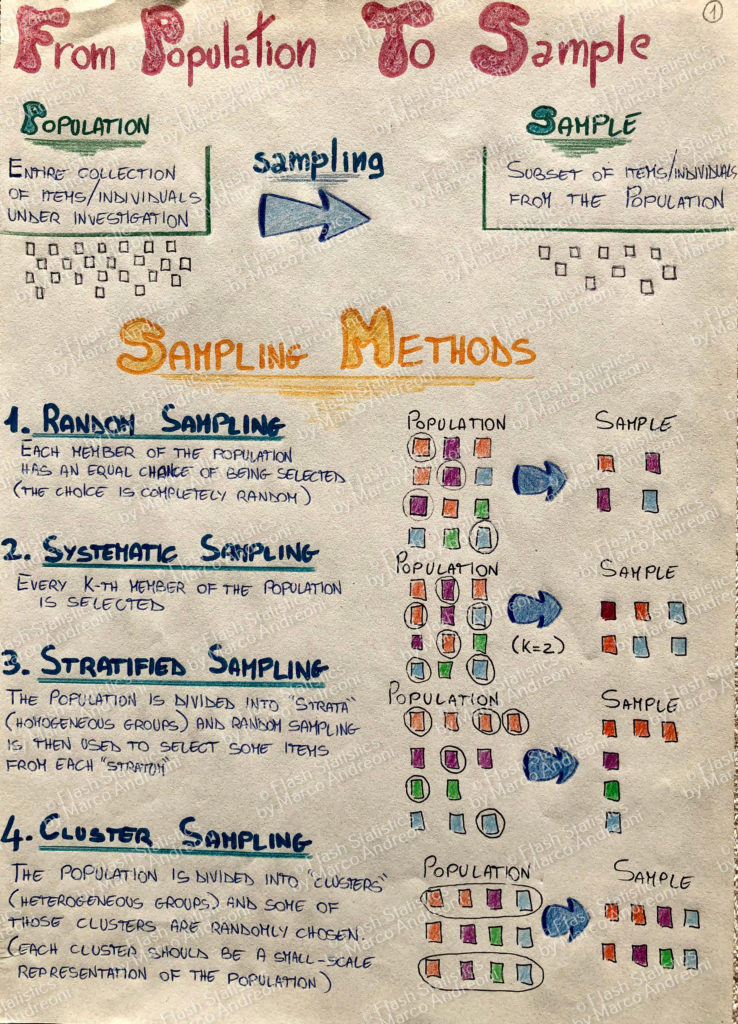 1
From Population To Sample
POPULATION
ENTIRE COLLECTION
OF ITEMS/INDIVIDUALS
UNDER INVESTIGATION
sampling
SAMPLE
SUBSET OF ITEMS/INDIVIDUALS
FROM THE POPULATION
SAMPLING METHODS
1. RANDOM SAMPLING
EACH MEMBER OF THE POPULATION
HAS AN EQUAL CHANCE OF BEING SELECTED
(THE CHOICE IS COMPLETELY RANDOM)
POPULATION
SAMPLE
2. SYSTEMATIC SAMPLING
EVERY K-TH MEMBER OF THE POPULATION
IS SELECTED
POPULATION
(K=2)
SAMPLE
3. STRATIFIED SAMPLING
THE POPULATION IS DIVIDED INTO "STRATA"
(HOMOGENEOUS GROUPS) AND RANDOM SAMPLING
IS THEN USED TO SELECT SOME ITEMS
FROM EACH "STRATUM"
POPULATION
SAMPLE
4. CLUSTER SAMPLING
THE POPULATION IS DIVIDED INTO "CLUSTERS"
(HETEROGENEOUS GROUPS) AND SOME OF
THOSE CLUSTERS ARE RANDOMLY CHOSEN
(EACH CLUSTER SHOULD BE A SMALL-SCALE
REPRESENTATION OF THE POPULATION)
POPULATION
SAMPLE
© Flash Statistics
by Marco Andreoni